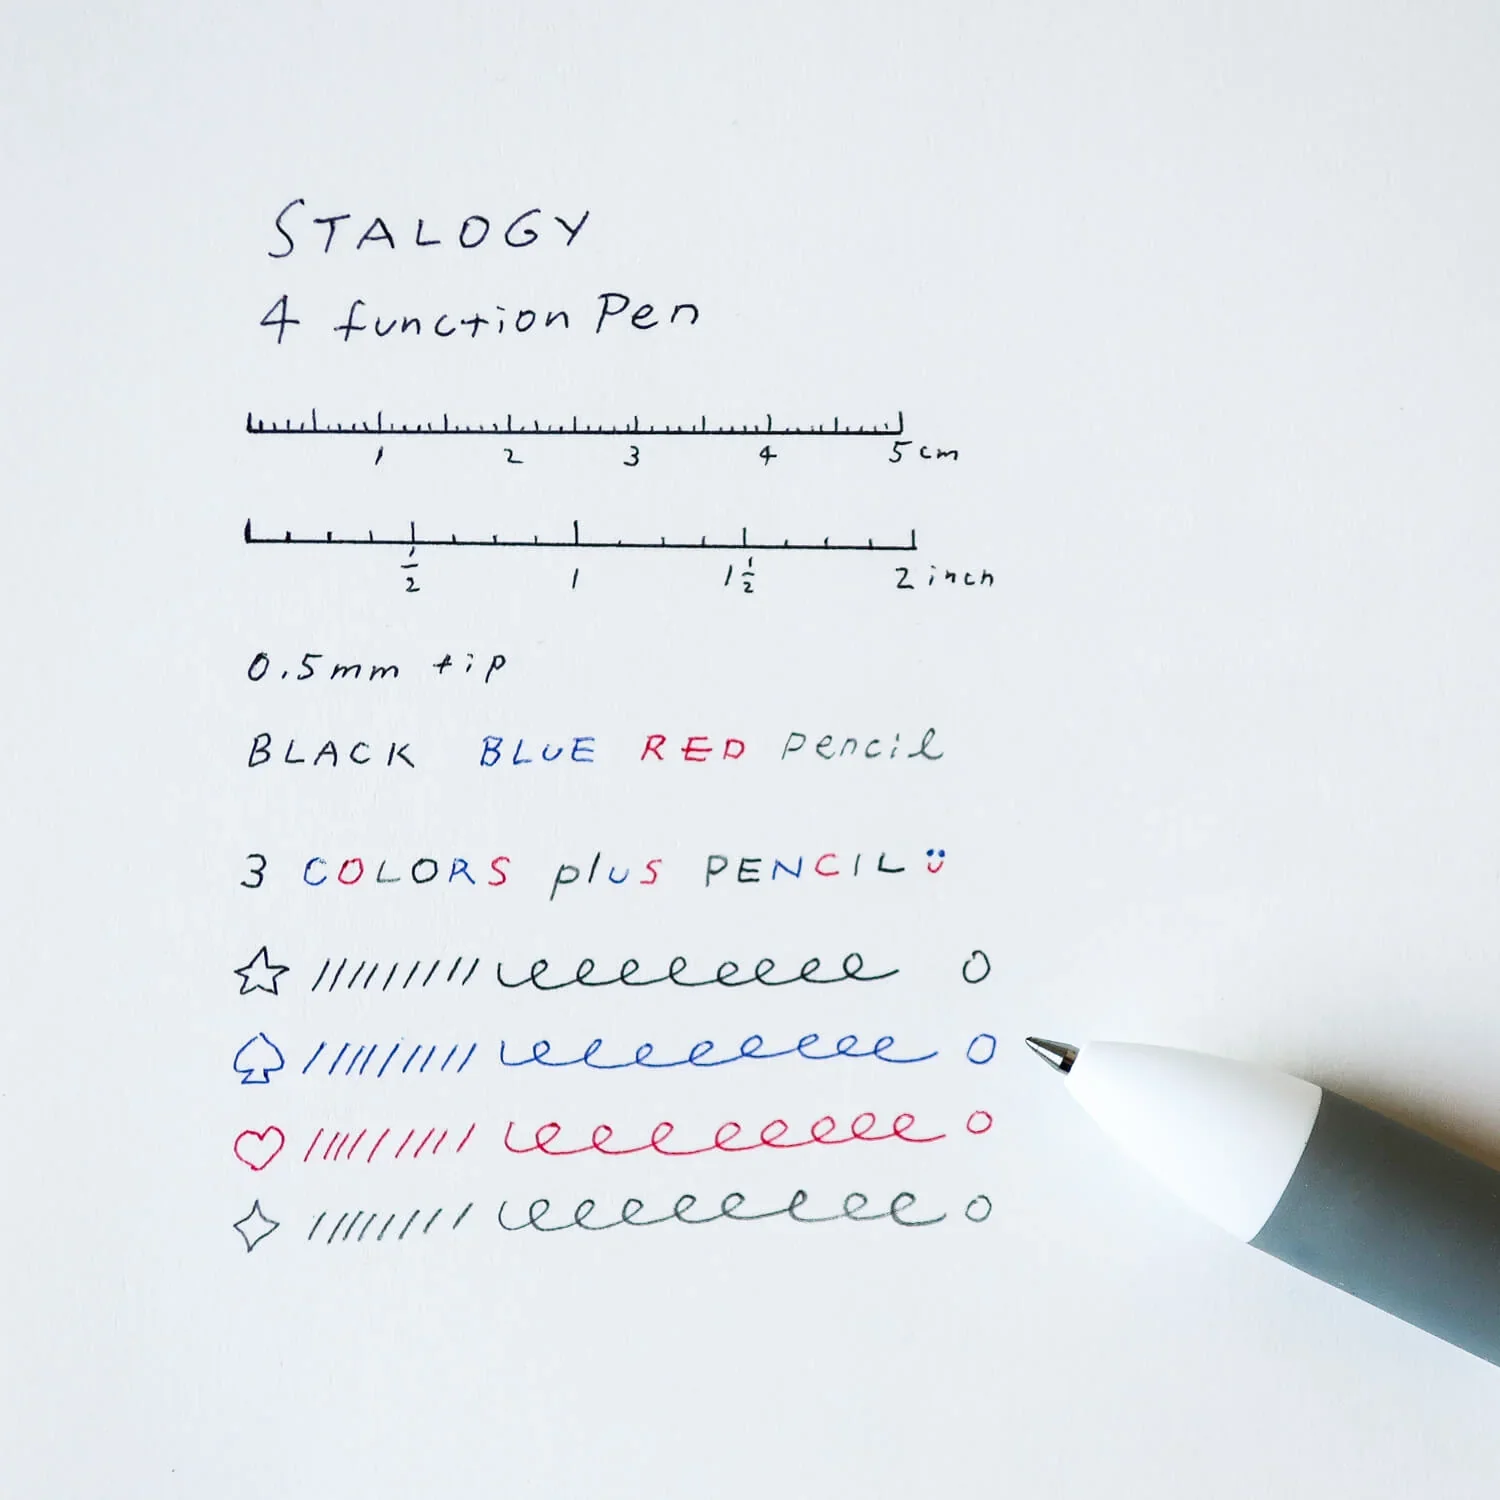 STALOGY
4 function Pen
1 2 3 4 5 cm
1/2 1 1 1/2 2 inch
0.5mm tip
BLACK BLUE RED Pencil
3 COLORS plus PENCIL